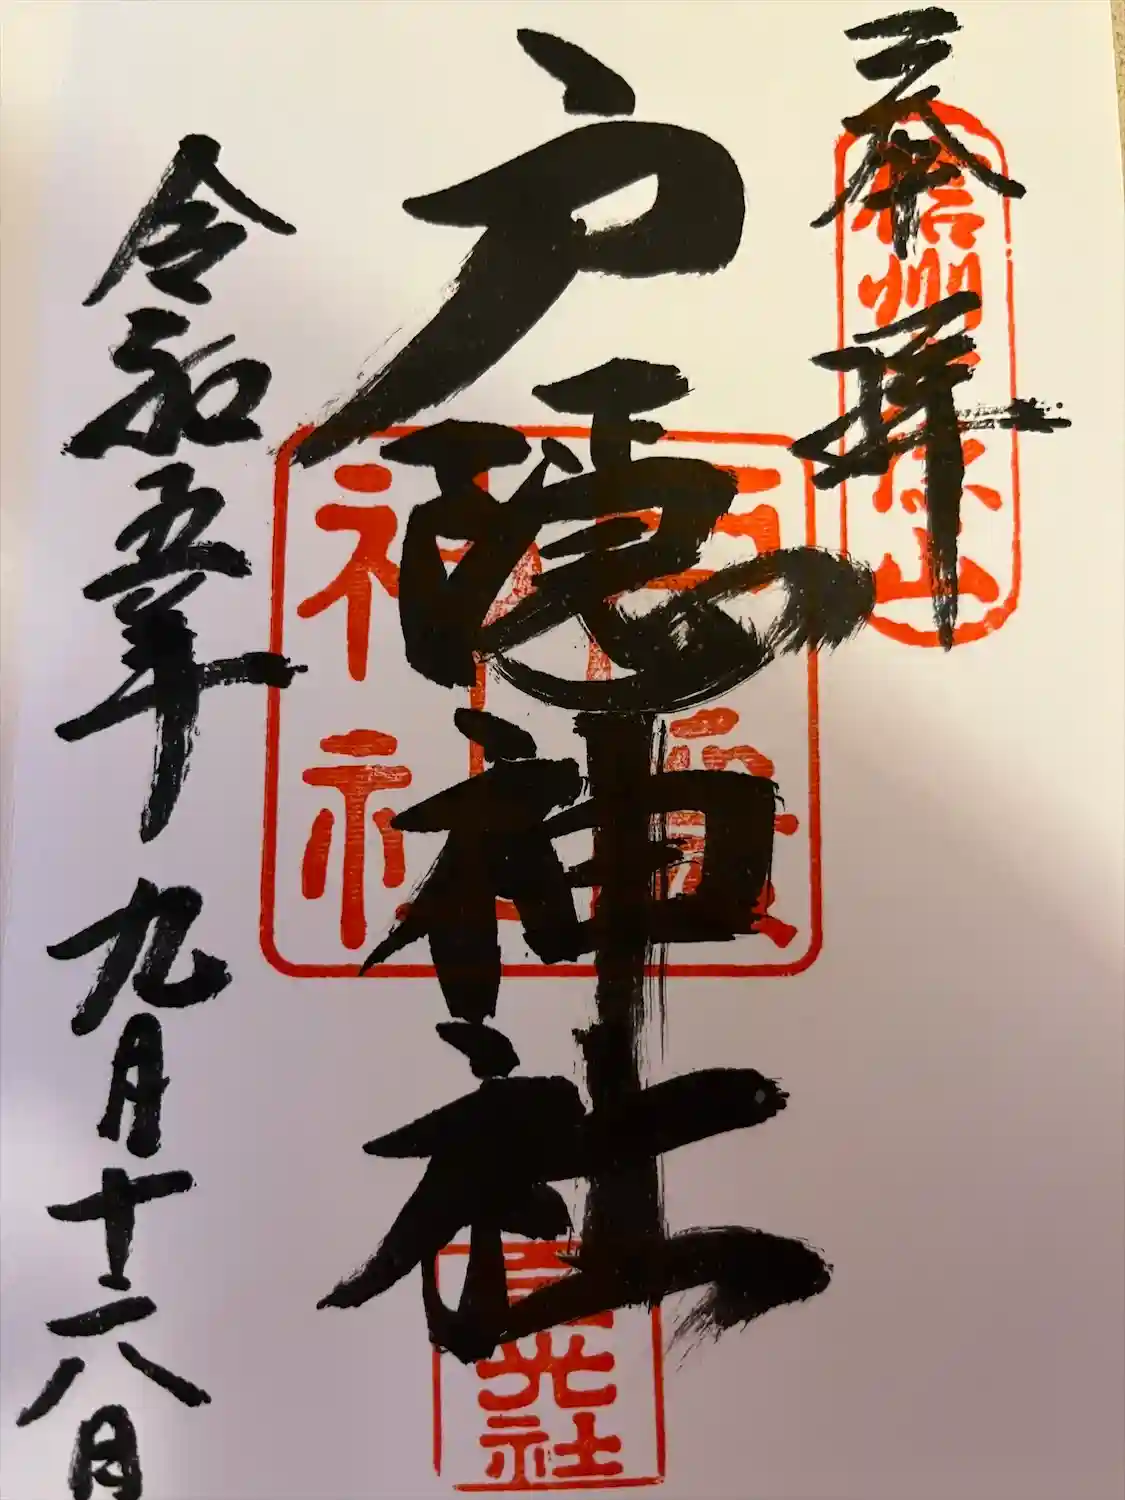 奉拝
信州戸隠山
戸隠神社
戸隠
神社
光社
令和五年九月十六日